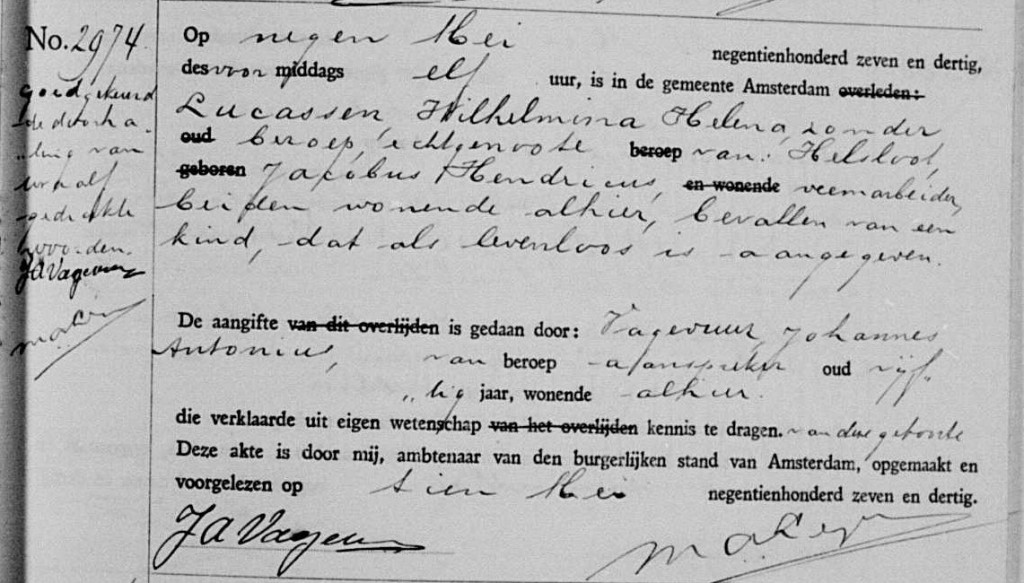 No. 2974.
goedgekeurd
de doorha-
ling van
twaalf
gedrukte
woorden.
JAVagevuur
Op negen Mei negentienhonderd zeven en dertig,
des voor middags elf uur, is in de gemeente Amsterdam overleden:
Lucassen, Wilhelmina Helena, zonder
oud beroep, echtgenoote beroep van: Helsloot,
geboren Jacobus Hendricus, en wonende veemarbeider,
beiden wonende alhier, bevallen van een
kind, dat als levenloos is aangegeven.
De aangifte van dit overlijden is gedaan door: Vagevuur, Johannes
Antonius, van beroep aanspreker oud vijf-
„tig jaar, wonende alhier.
die verklaarde uit eigen wetenschap van het overlijden kennis te dragen. van deze geboorte
Deze akte is door mij, ambtenaar van den burgerlijken stand van Amsterdam, opgemaakt en
voorgelezen op tien Mei negentienhonderd zeven en dertig.
JAVagevuur